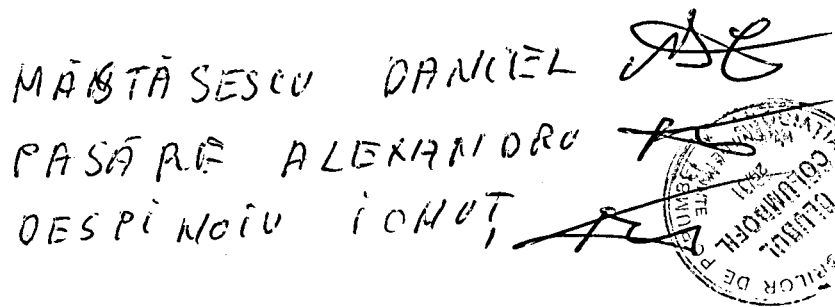 MĂNTĂSESCU DANIEL
PASĂRE ALEXANDRU
DESPINOIU IONUȚ
CLUBUL
COLUMBOFIL